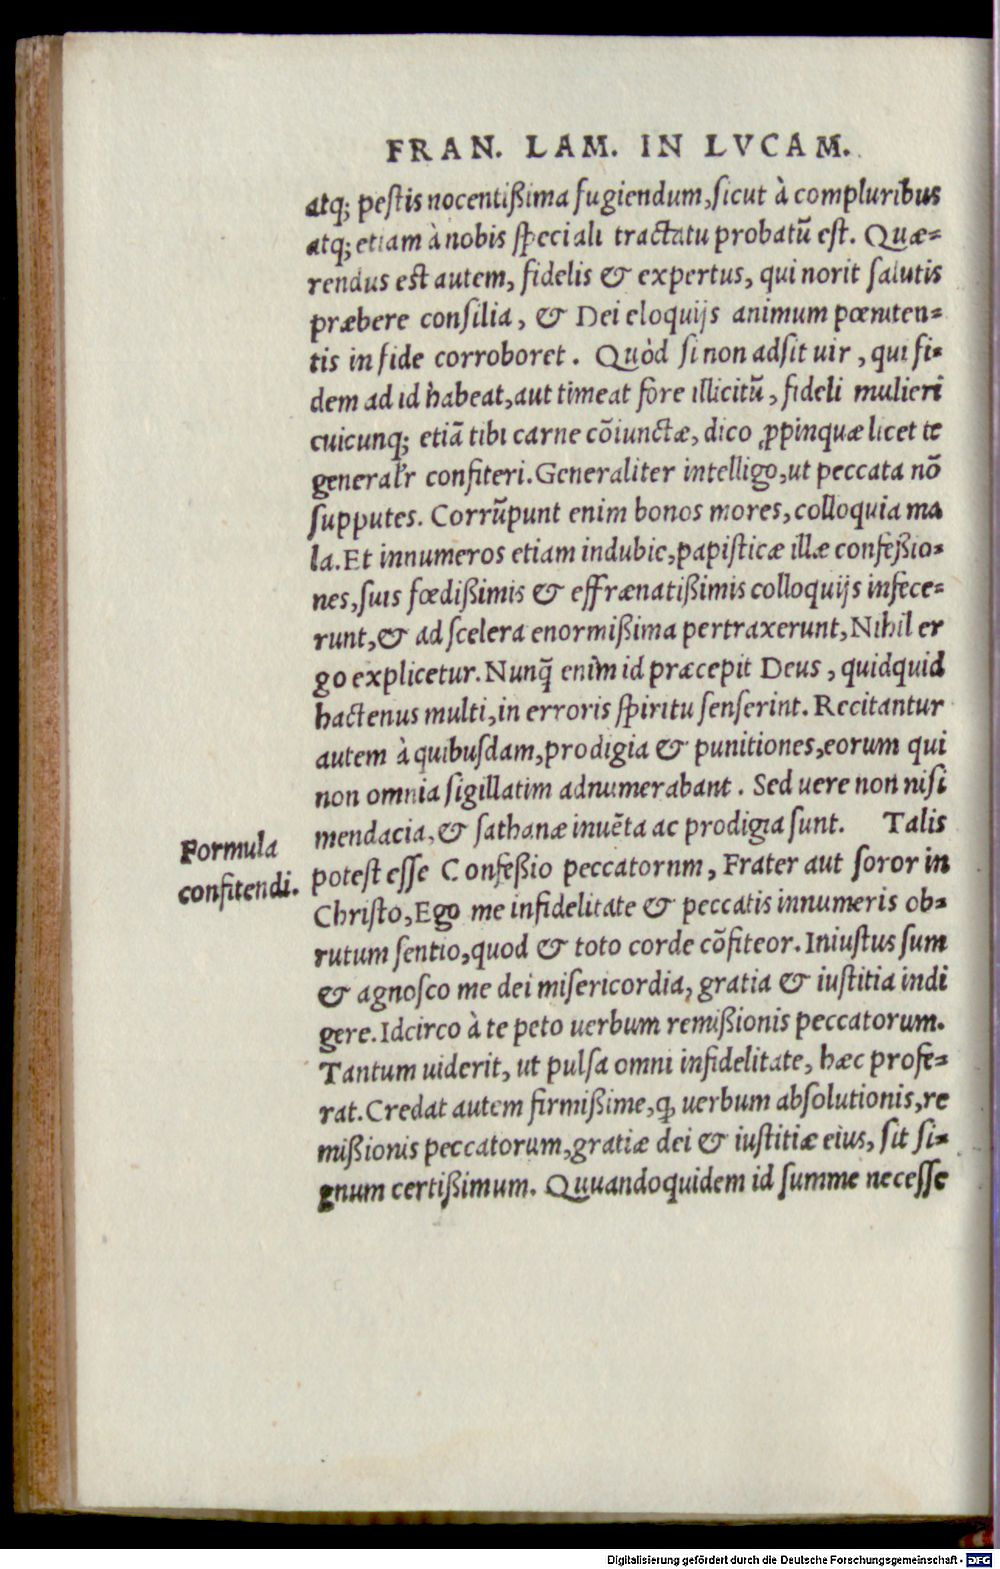 FRAN. LAM. IN LVCAM.
atq; pestis nocentißima fugiendum, sicut à compluribus
atq; etiam à nobis speciali tractatu probatũ est. Quæ=
rendus est autem, fidelis & expertus, qui norit salutis
præbere consilia, & Dei eloquijs animum pœniten=
tis in fide corroboret. Quòd si non adsit uir, qui fi=
dem ad id habeat, aut timeat fore illicitũ, fideli mulieri
cuicunq; etiã tibi carne cõiunctæ, dico ꝓpinquæ licet te
generaľr confiteri. Generaliter intelligo, ut peccata nõ
supputes. Corrũpunt enim bonos mores, colloquia ma
la. Et innumeros etiam indubie, papisticæ illæ confeßio=
nes, suis fœdißimis & effrænatißimis colloquijs infece=
runt, & ad scelera enormißima pertraxerunt, Nihil er
go explicetur. Nunq̃ enim id præcepit Deus, quidquid
hactenus multi, in erroris spiritu senserint. Recitantur
autem à quibusdam, prodigia & punitiones, eorum qui
non omnia sigillatim adnumerabant. Sed uere non nisi
mendacia, & sathanæ inuẽta ac prodigia sunt. Talis
Formula
confitendi.
potest esse Confeßio peccatornm, Frater aut soror in
Christo, Ego me infidelitate & peccatis innumeris ob=
rutum sentio, quod & toto corde cõfiteor. Iniustus sum
& agnosco me dei misericordia, gratia & iustitia indi
gere. Idcirco à te peto uerbum remißionis peccatorum.
Tantum uiderit, ut pulsa omni infidelitate, hæc profe=
rat. Credat autem firmißime, ꝙ uerbum absolutionis, re
mißionis peccatorum, gratiæ dei & iustitiæ eius, sit si=
gnum certißimum. Quuandoquidem id summe necesse
Digitalisierung gefördert durch die Deutsche Forschungsgemeinschaft - DFG